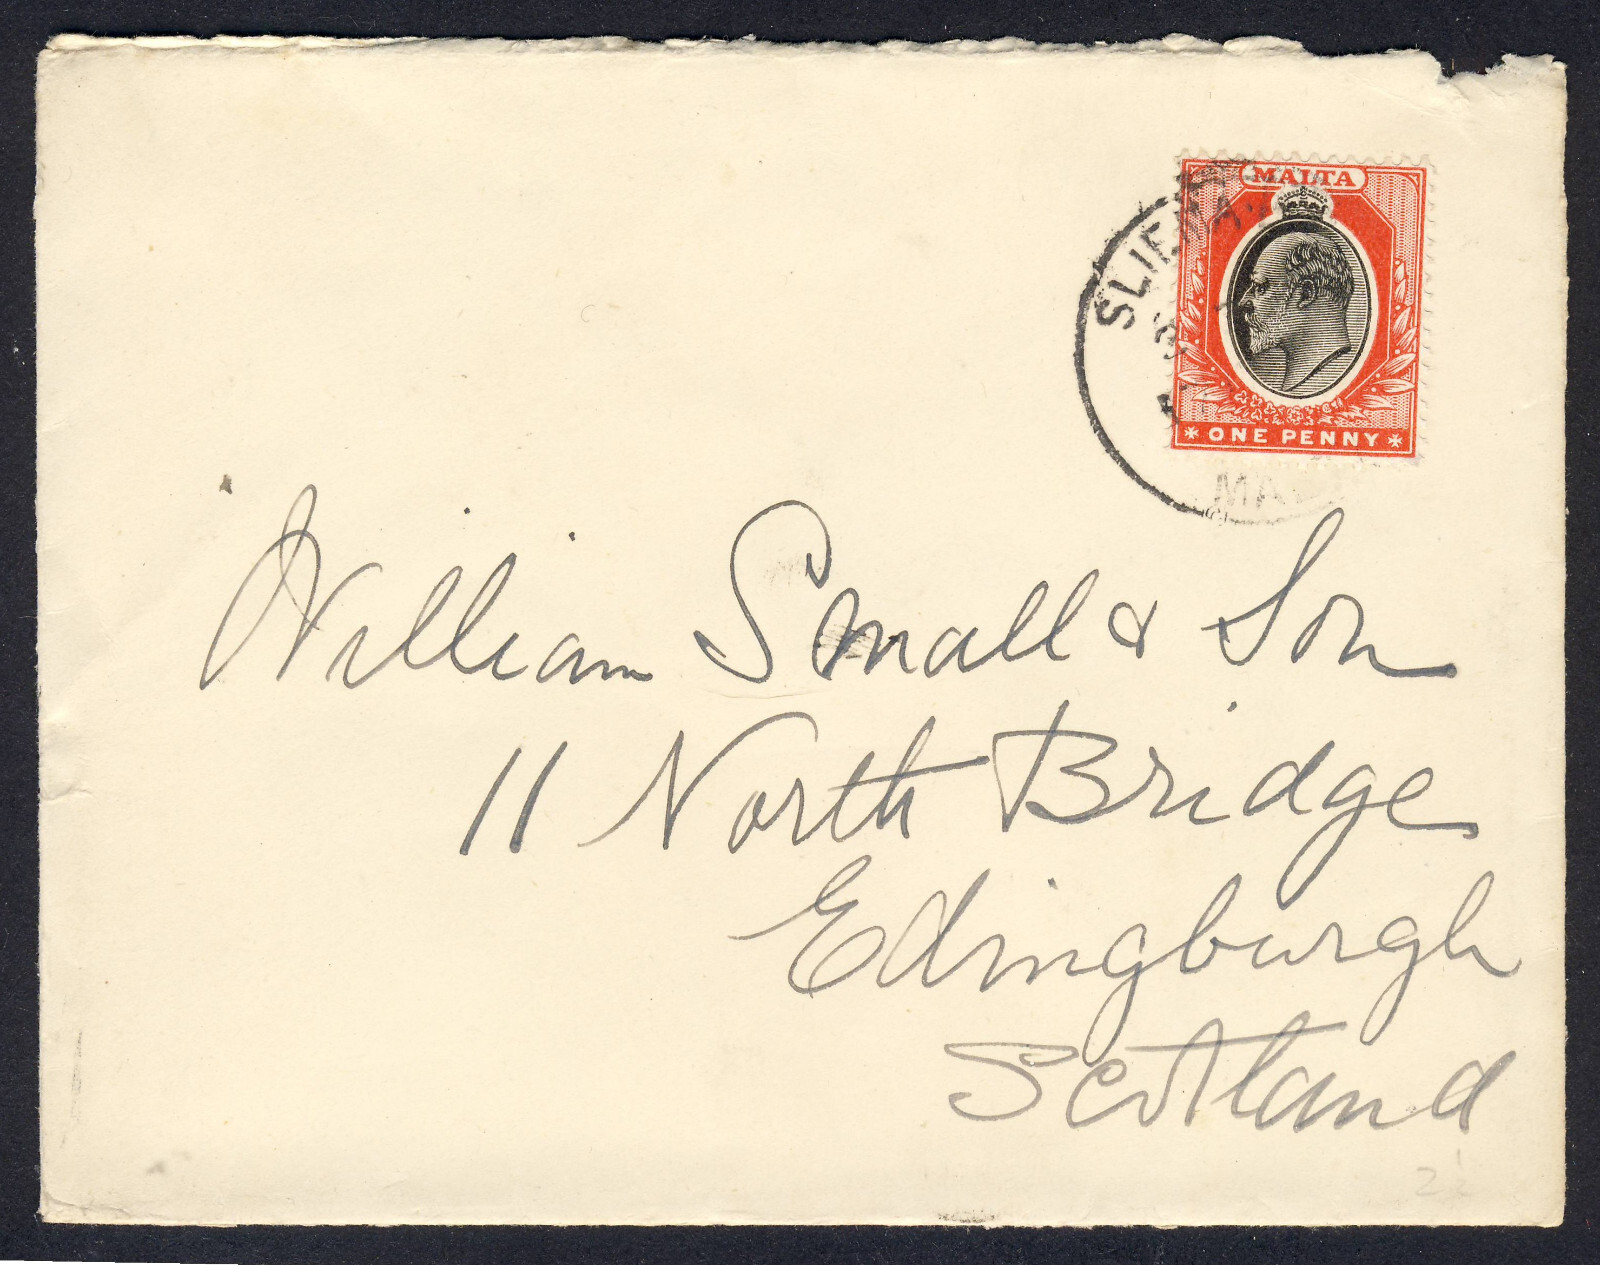 MALTA
SLIEMA
ONE PENNY
MA
William Small & Son
11 North Bridge
Edingburgh
Scotland